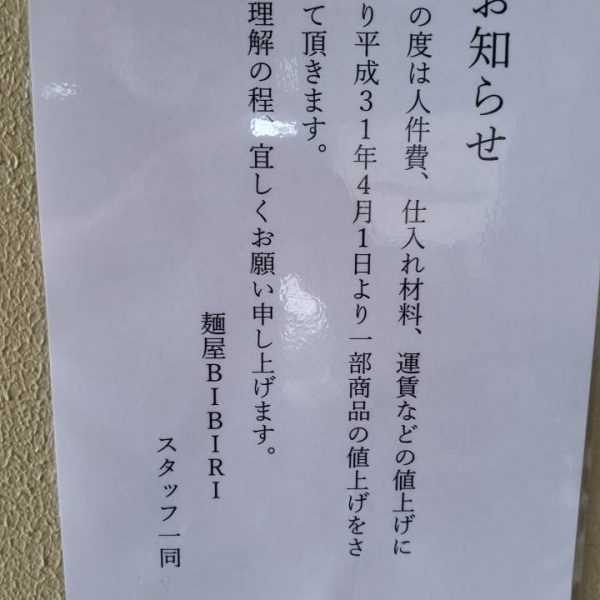 お知らせ
の度は人件費、仕入れ材料、運賃などの値上げに
り平成３１年４月１日より一部商品の値上げをさ
て頂きます。
理解の程、宜しくお願い申し上げます。
麺屋ＢＩＢＩＲＩ
スタッフ一同